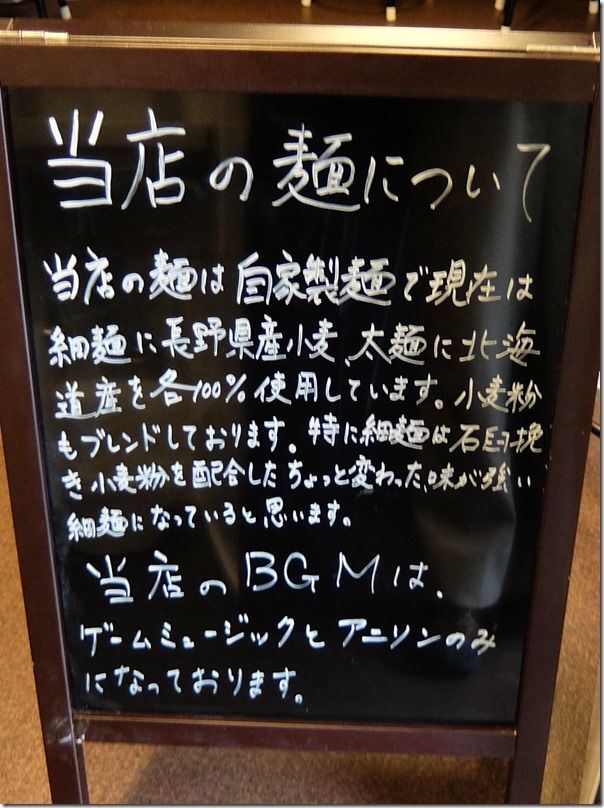 当店の麺について
当店の麺は自家製麺で現在は
細麺に長野県産小麦、太麺に北海
道産を各100%使用しています。小麦粉
もブレンドしております。特に細麺は石臼挽
き小麦粉を配合したちょっと変わった、味が強い
細麺になっていると思います。
当店のBGMは、
ゲームミュージックとアニソンのみ
になっております。